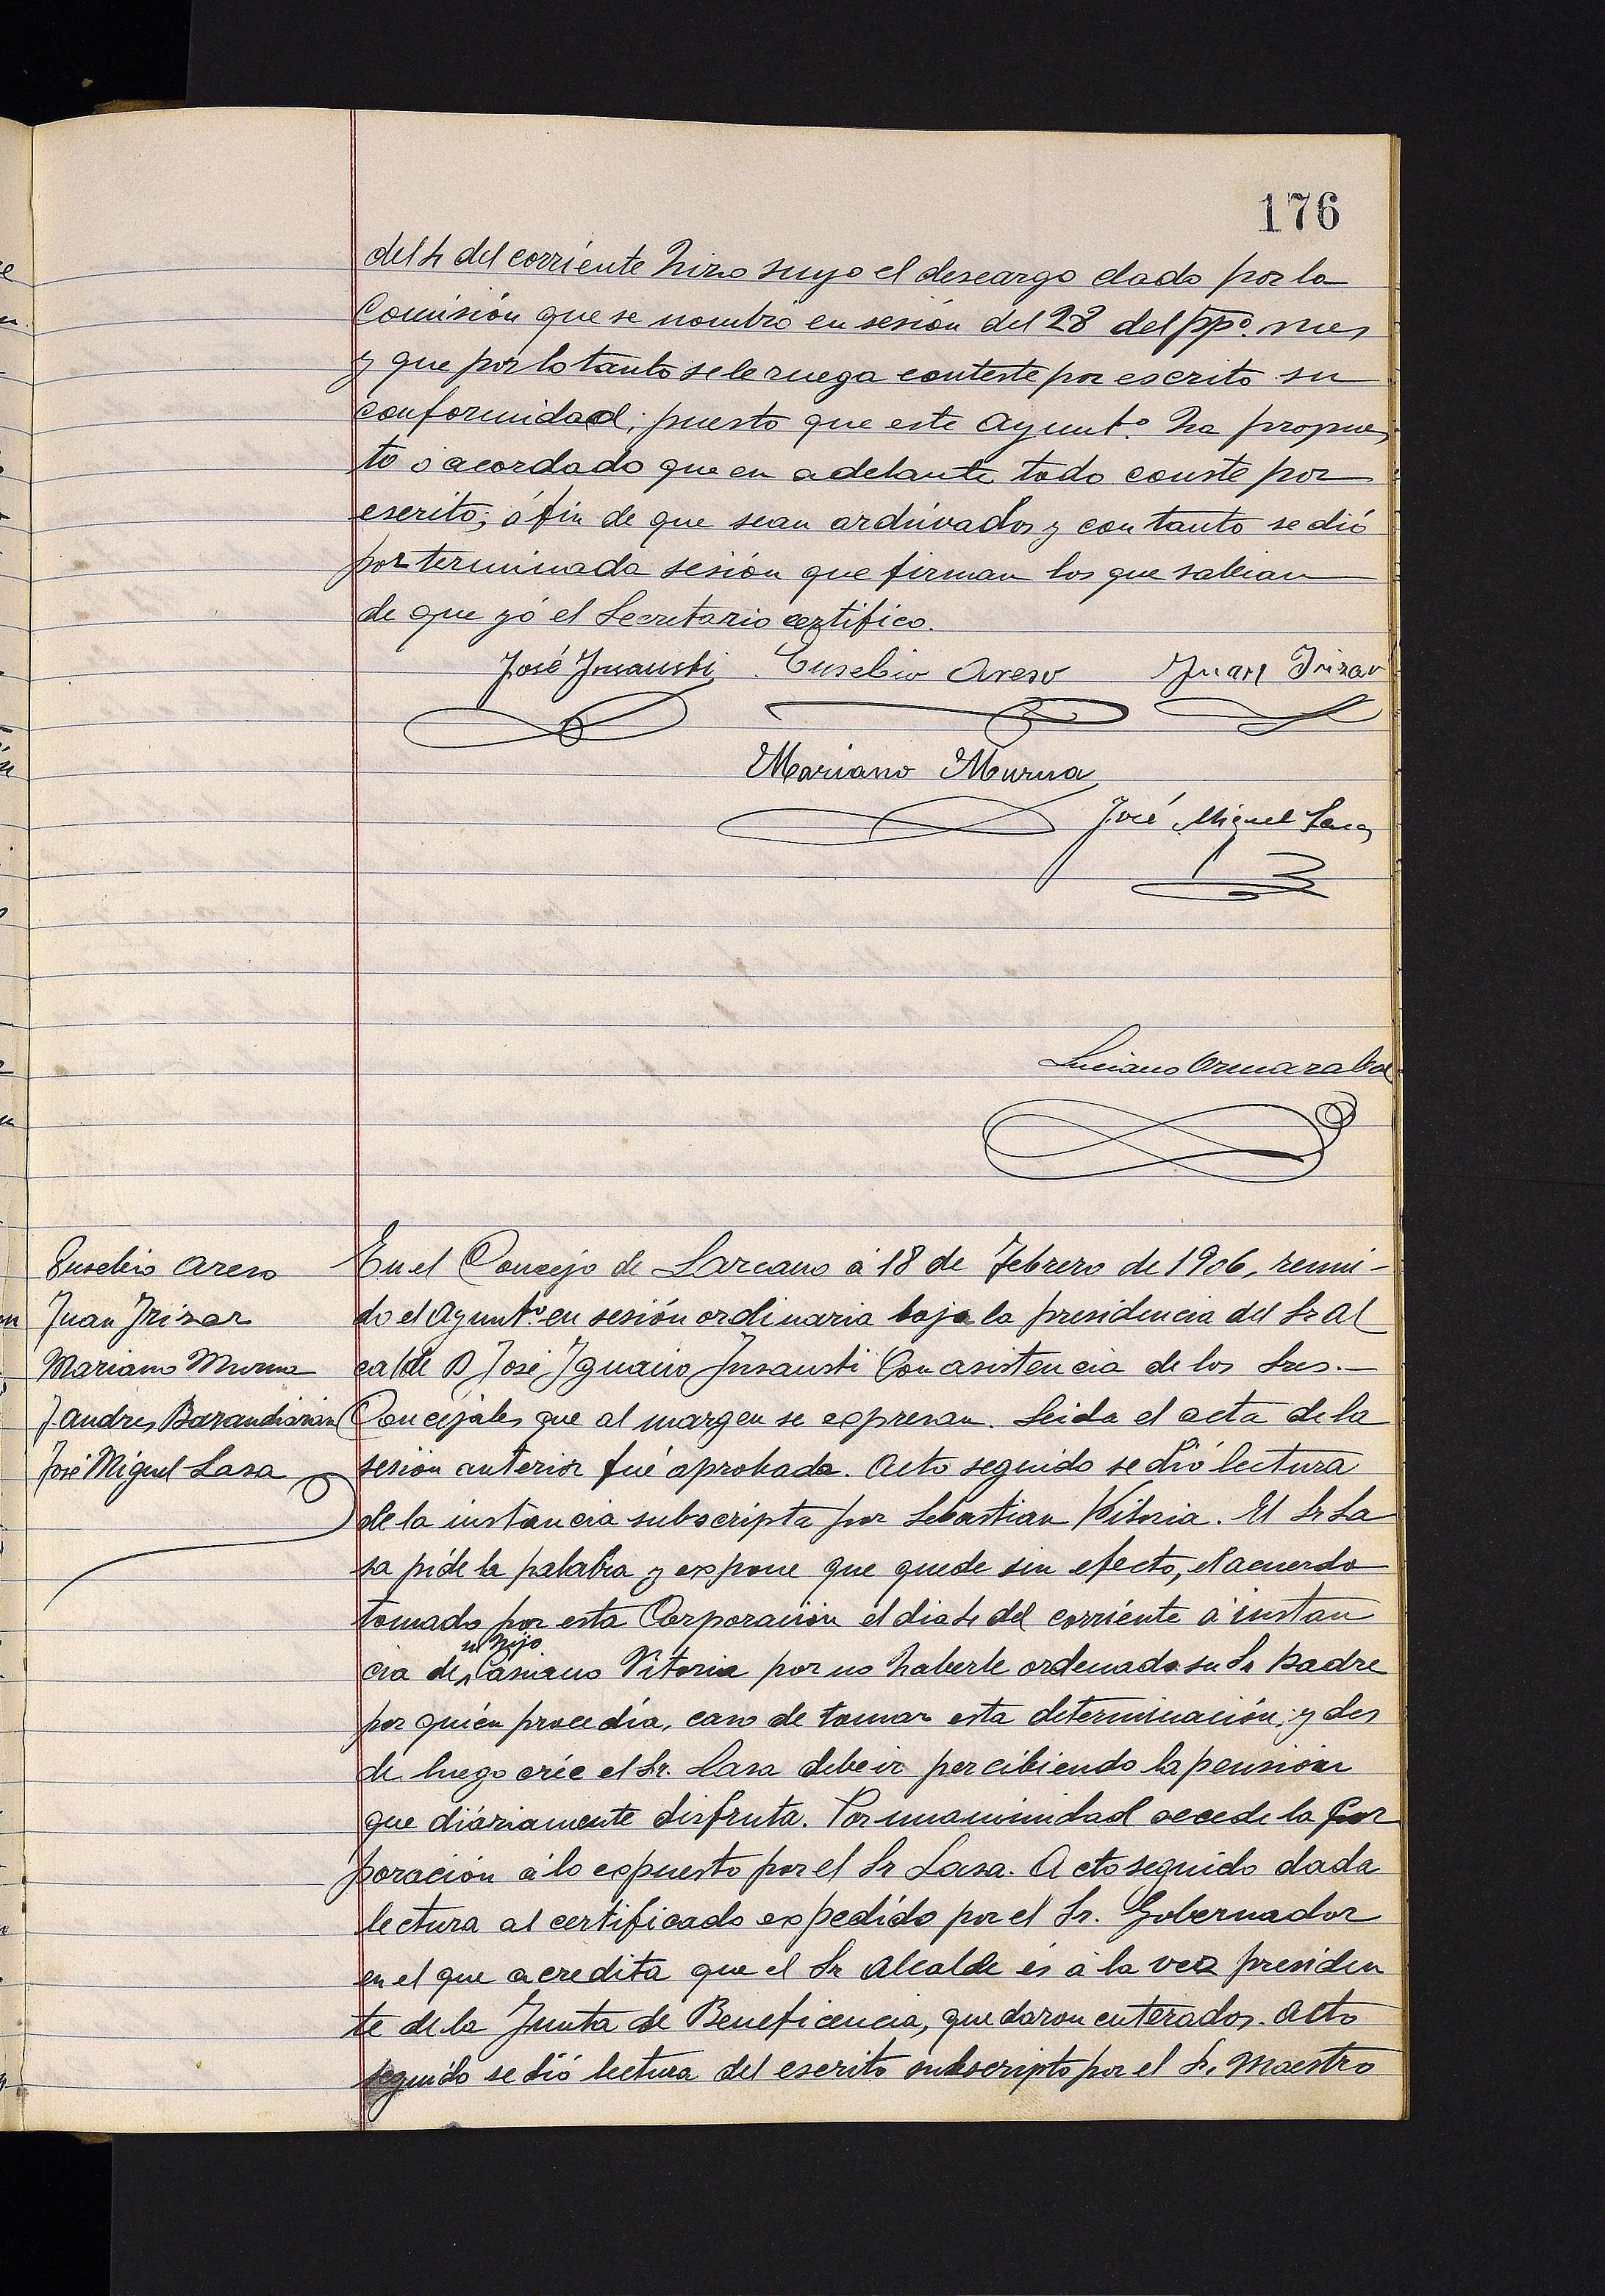 176
del 4 del corriente hizo suyo el descargo dado por la
Comisión que se nombró en sesión del 28 del ppº. mes
y que por lo tanto se le ruega conteste por escrito su
conformidad; puesto que este Ayuntº. ha propues
to ó acordado que en adelante todo conste por
escrito, á fin de que sean archivados y con tanto se dió
por terminada sesión que firman los que sabian
de que yó el Secretario certifico.
José Insausti Eusebio Areso Juan Irizar
Mariano Murua
José Miguel Lasa
Luciano Ormazabal
Eusebio Areso
Juan Irizar
Mariano Murua
J. Andres Barandiarán
José Miguel Lasa
En el Concejo de Lazcano á 18 de Febrero de 1906, reuni-
do el Ayuntº en sesión ordinaria bajo la presidencia del Sr Al
calde D José Ignacio Insausti Con asistencia de los Sres.
Concejales que al margen se expresan. Leida el acta de la
sesión anterior fué aprobada. Acto seguido se dió lectura
de la instancia subscripta por Sebastian Vitoria. El Sr La
sa pide la palabra y expone que quede sin efecto, el acuerdo
tomado por esta Corporación el dia 4 del corriente á instan
su hijo
cia de Casiano Vitoria por no haberle ordenado su Sr Padre
por quién procedía, caso de tomar esta determinación; y des
de luego crée el Sr. Lasa debe ir percibiendo la pensión
que diáriamente disfruta. Por unanimidad accede la Cor
poración á lo expuesto por el Sr Lasa. Acto seguido dada
lectura al certificado expedido por el Sr. Gobernador
en el que acredita que el Sr Alcalde es á la vez presiden
te de la Junta de Beneficencia, quedaron enterados. Acto
seguido se dió lectura del escrito subscripto por el Sr. Maestro